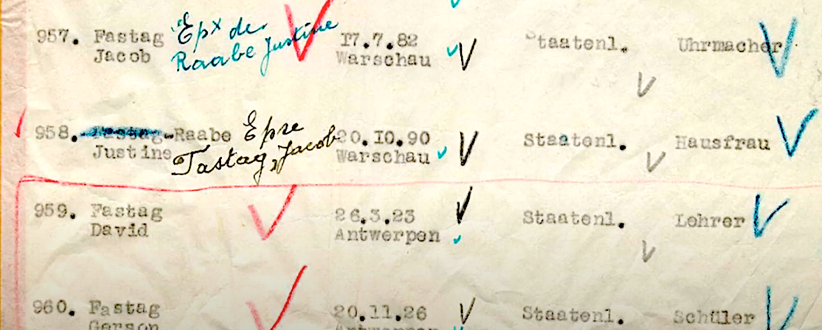 957. Fastag Epx de 17.7.82 Staatenl. Uhrmacher
Jacob Raabe Justine Warschau
958. Fastag-Raabe Epse 20.10.90 Staatenl. Hausfrau
Justine Fastag, Jacob Warschau
959. Fastag 26.3.23 Staatenl. Lehrer
David Antwerpen
960. Fastag 20.11.26 Staatenl. Schüler
Gerson Antwerpen